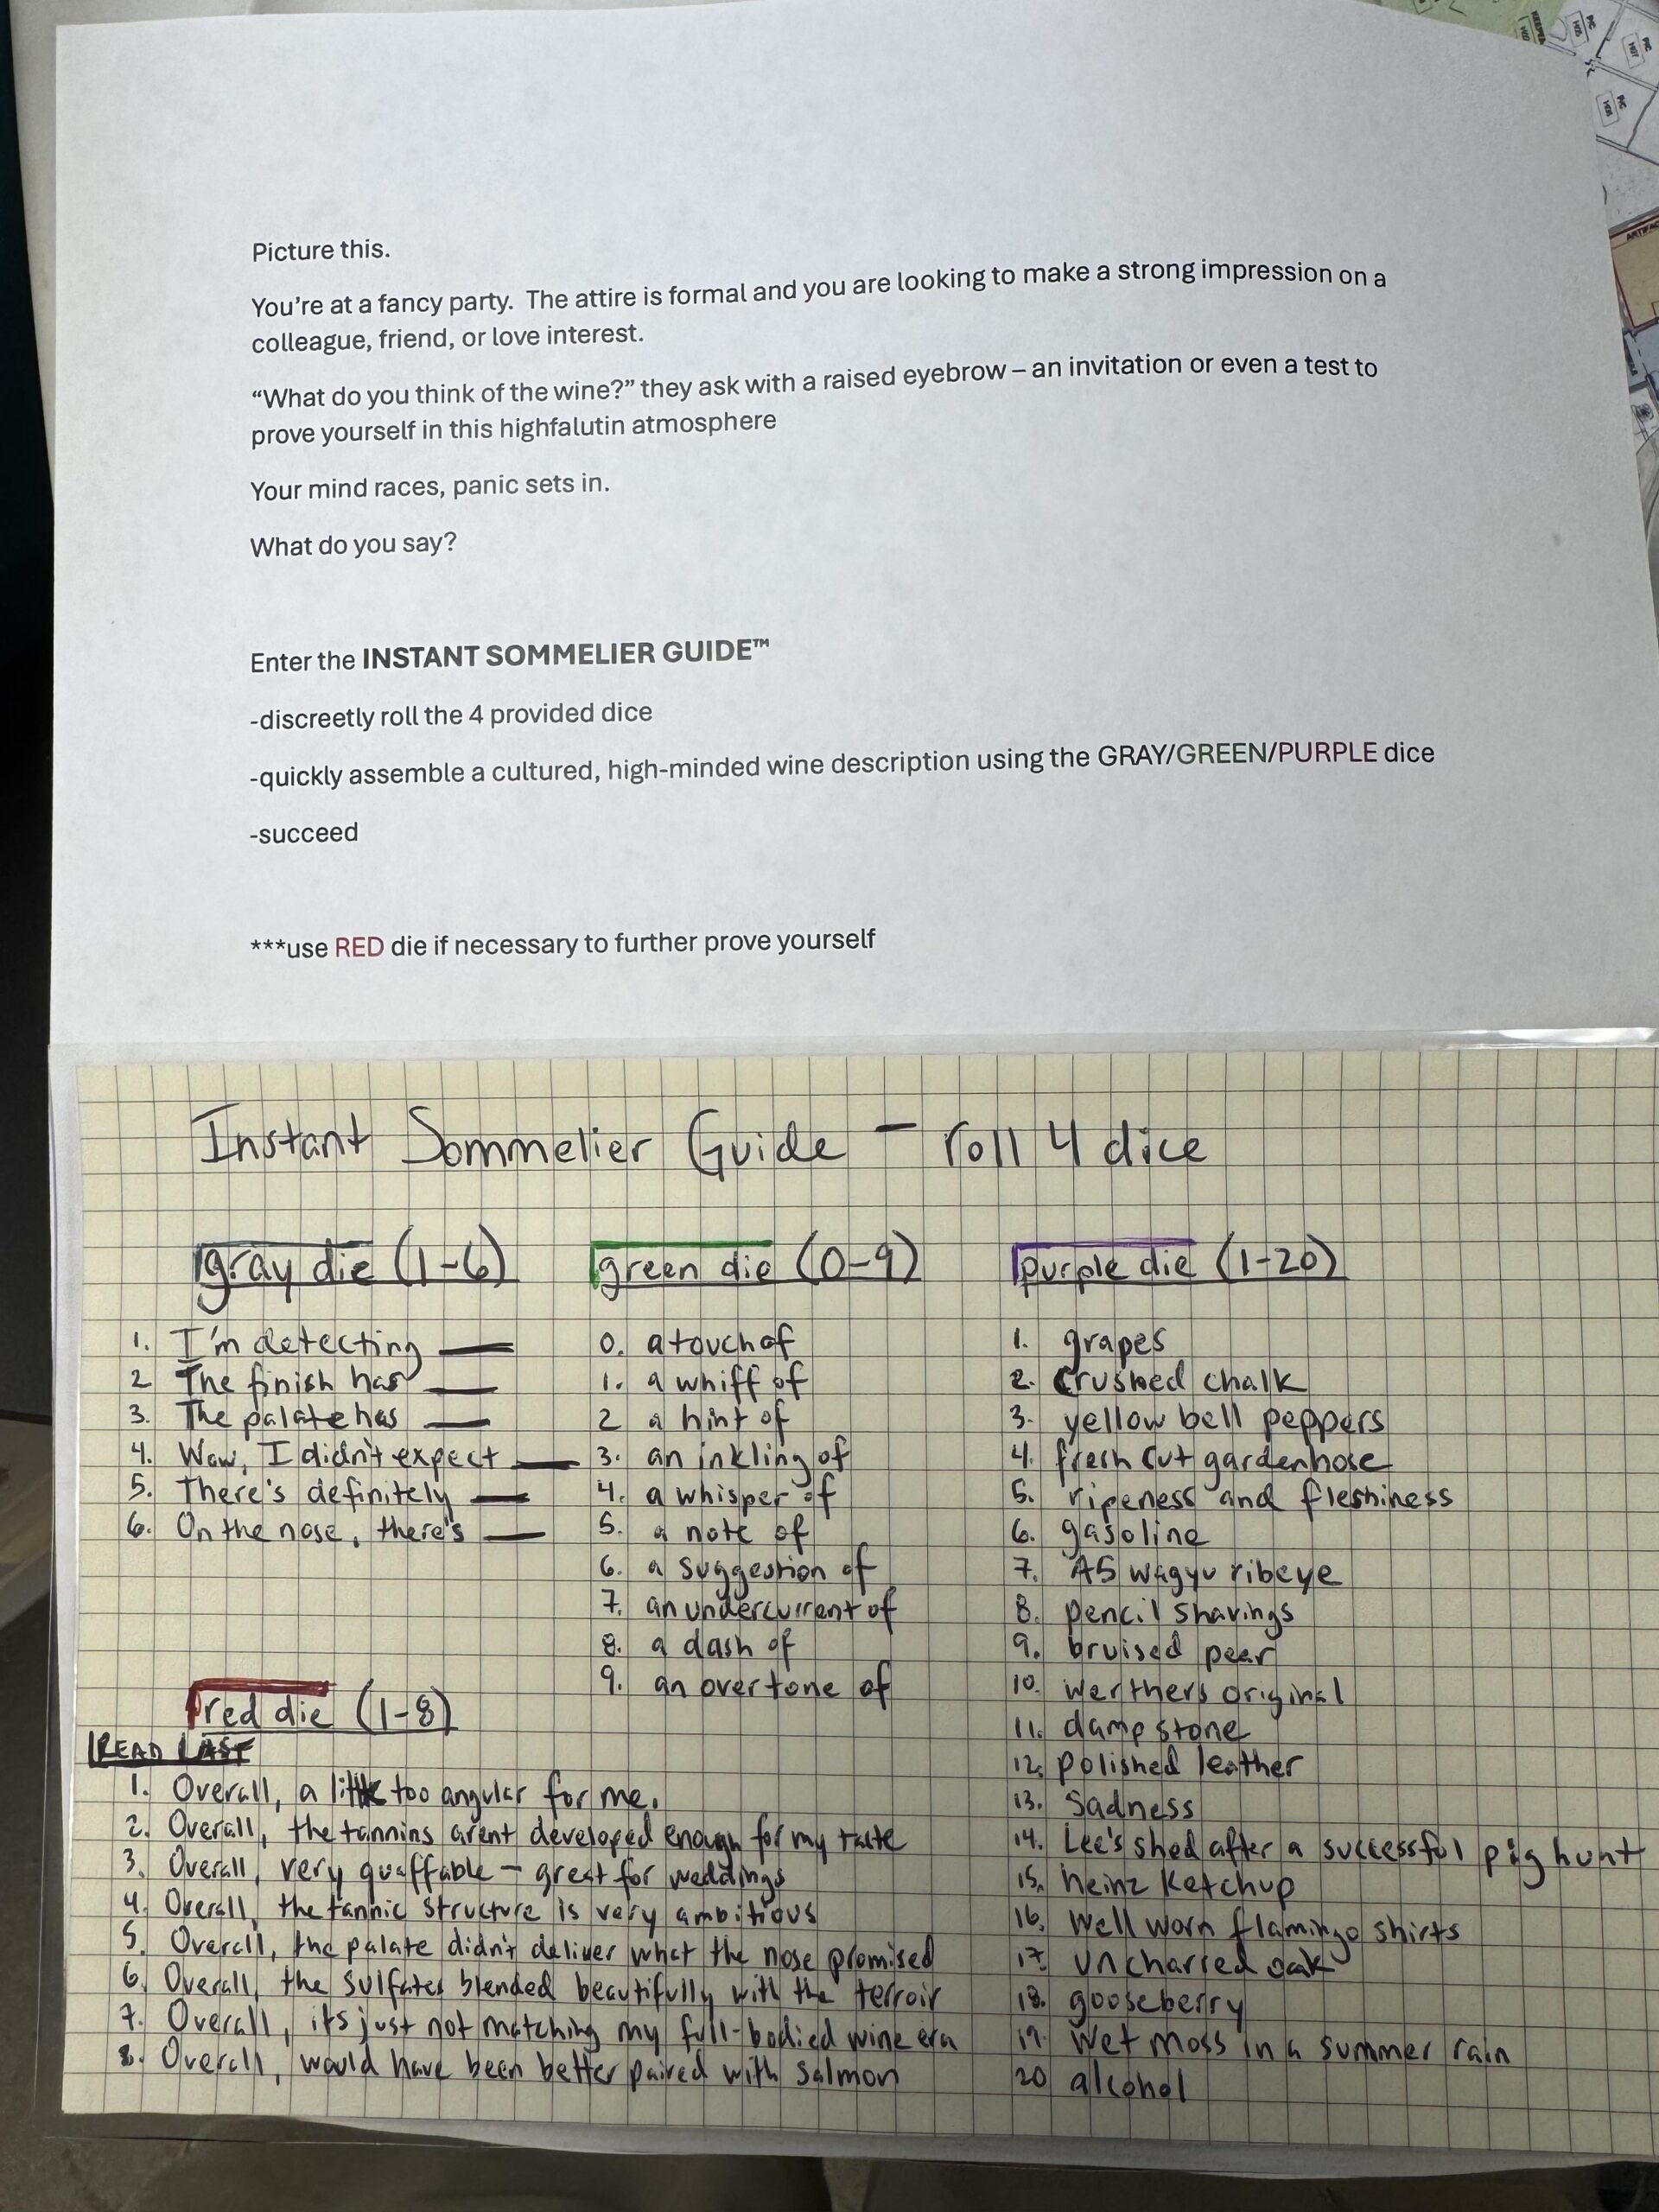 Picture this.
You're at a fancy party. The attire is formal and you are looking to make a strong impression on a
colleague, friend, or love interest.
“What do you think of the wine?” they ask with a raised eyebrow – an invitation or even a test to
prove yourself in this highfalutin atmosphere
Your mind races, panic sets in.
What do you say?
Enter the INSTANT SOMMELIER GUIDE™
-discreetly roll the 4 provided dice
-quickly assemble a cultured, high-minded wine description using the GRAY/GREEN/PURPLE dice
-succeed
***use RED die if necessary to further prove yourself
Instant Sommelier Guide – roll 4 dice
gray die (1-6)
1. I'm detecting ___
2 The finish has ___
3. The palate has ___
4. Wow, I didn't expect ___
5. There's definitely ___
6. On the nose, there's ___
green die (0-9)
0. a touch of
1. a whiff of
2 a hint of
3. an inkling of
4. a whisper of
5. a note of
6. a suggestion of
7. an undercurrent of
8. a dash of
9. an overtone of
purple die (1-20)
1. grapes
2. crushed chalk
3. yellow bell peppers
4. fresh cut gardenhose
5. ripeness and fleshiness
6. gasoline
7. A5 wagyu ribeye
8. pencil shavings
9. bruised pear
10. werthers original
11. damp stone
12. polished leather
13. Sadness
14. Lee's shed after a successful pig hunt
15. heinz ketchup
16. well worn flamingo shirts
17. uncharred oak
18. gooseberry
19. wet moss in a summer rain
20 alcohol
red die (1-8)
READ LAST
1. Overall, a little too angular for me.
2. Overall, the tannins arent developed enough for my taste
3. Overall, very quaffable – great for weddings
4. Overall, the tannic structure is very ambitious
5. Overall, the palate didn't deliver what the nose promised
6. Overall, the sulfates blended beautifully with the terroir
7. Overall, its just not matching my full-bodied wine era
8. Overall, would have been better paired with salmon